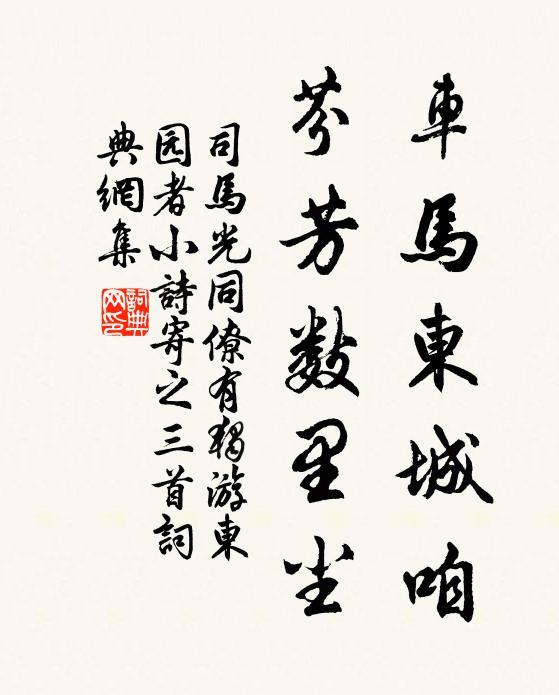 車馬東城咱
芬芳数里尘
司馬光同僚有獨游東
园者小詩寄之三首詞
典網集
詞典
网印